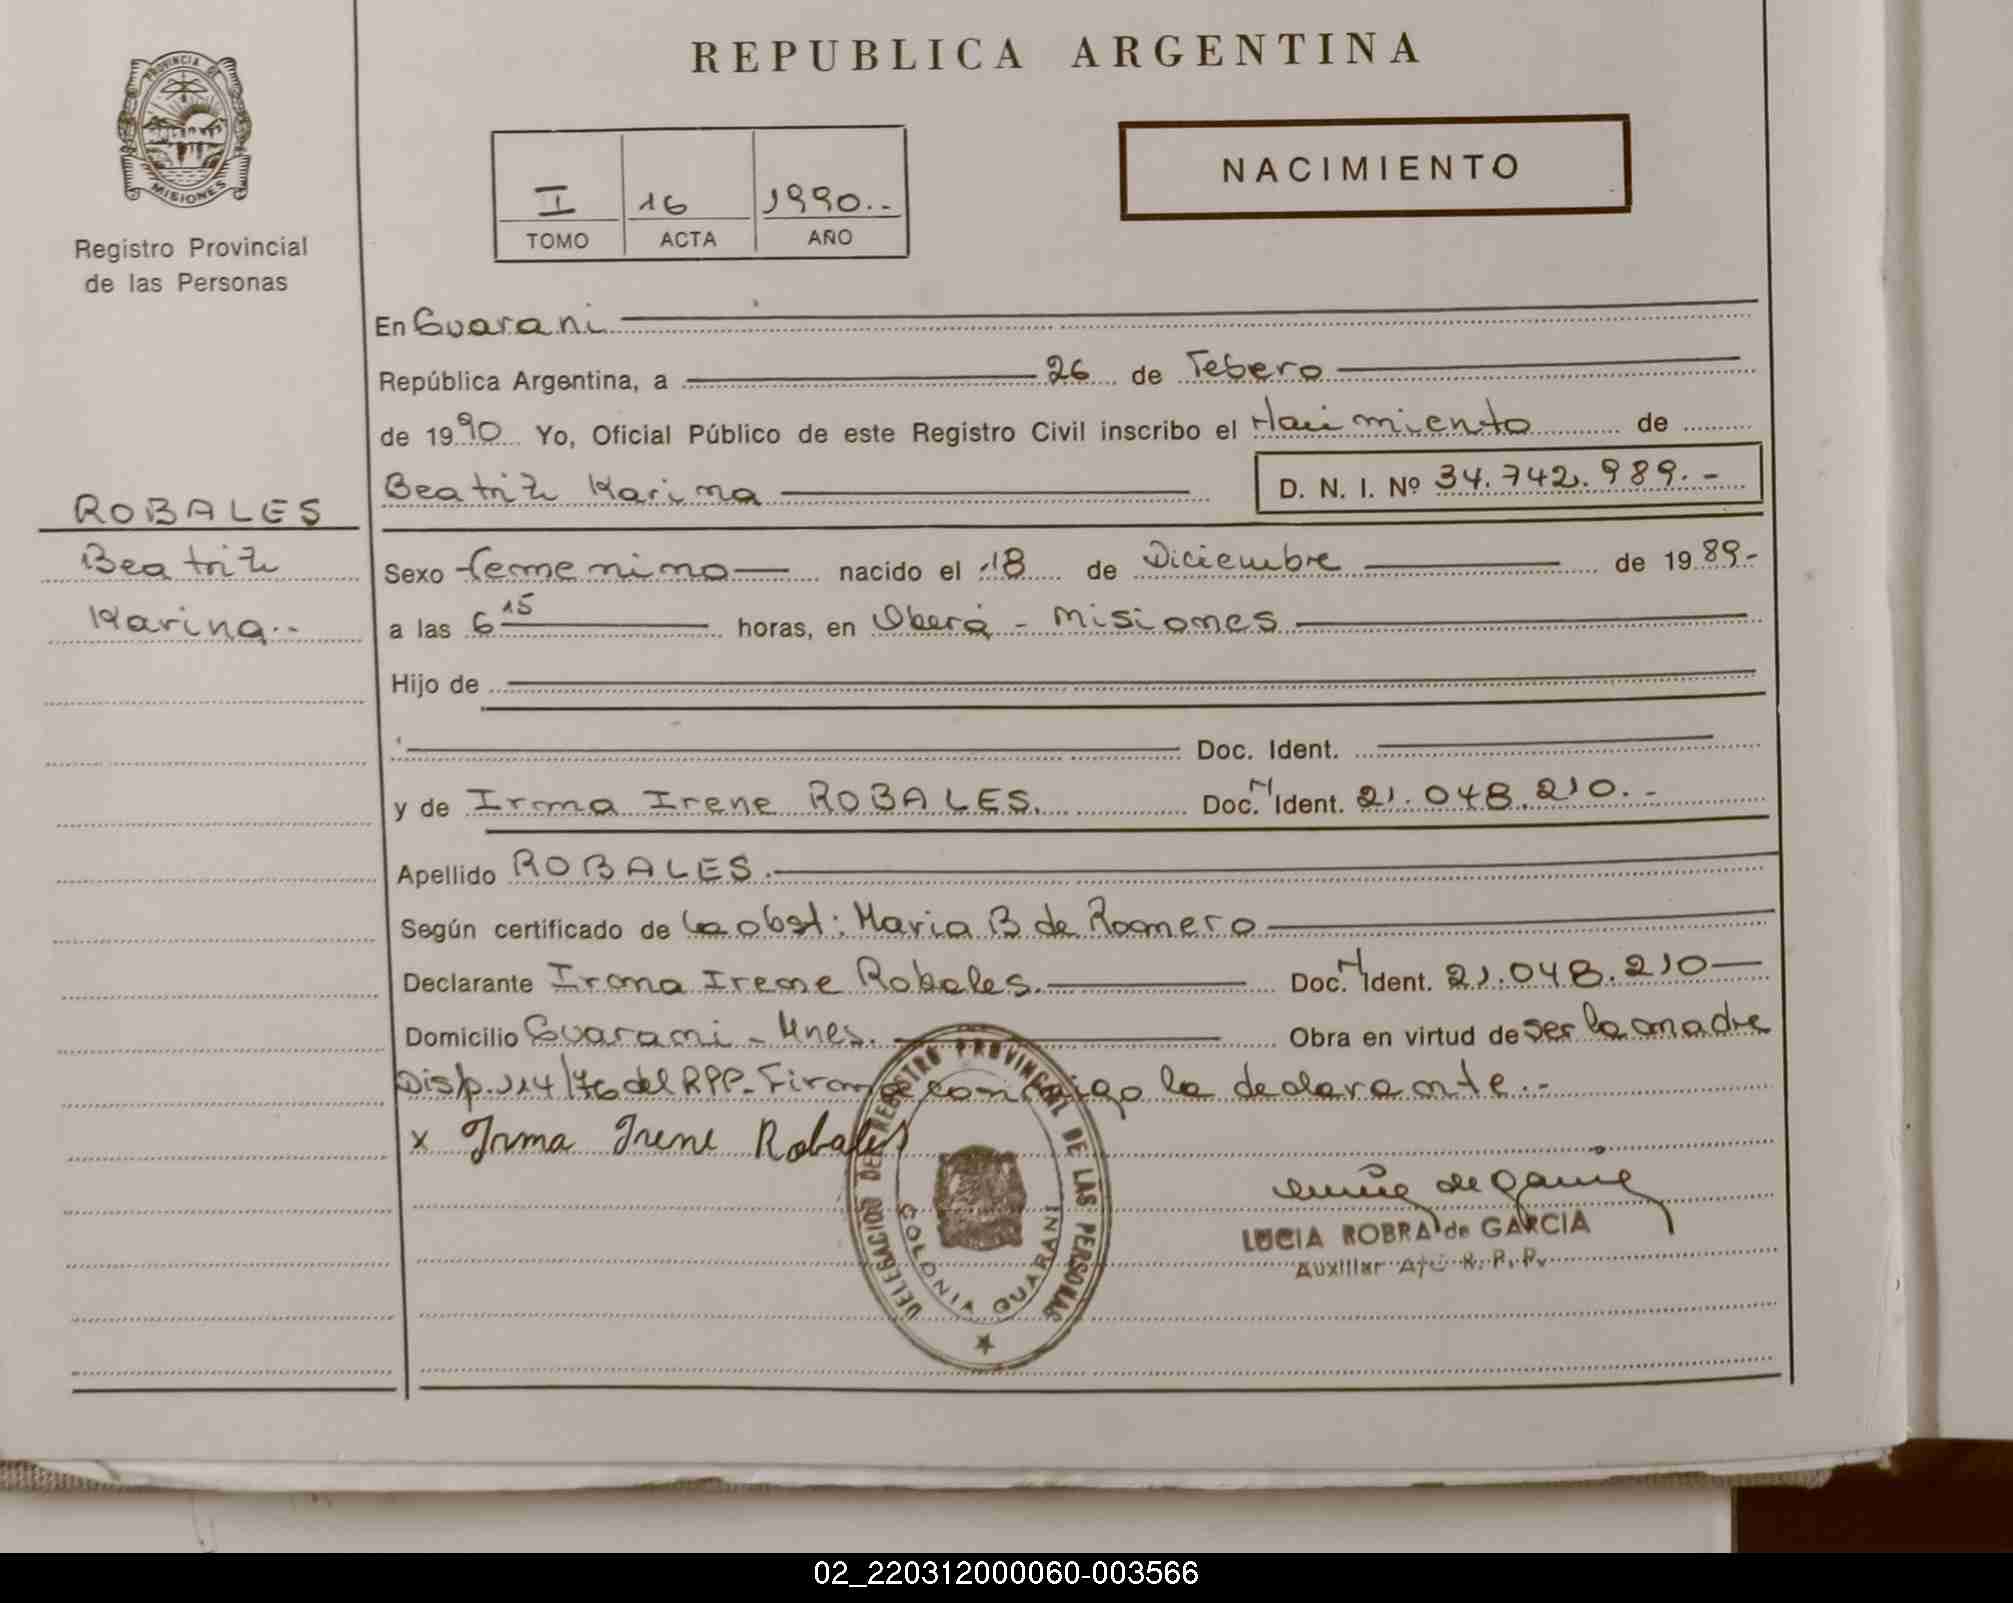 REPUBLICA ARGENTINA
PROVINCIA DE MISIONES
Registro Provincial
de las Personas
I 16 1990..
TOMO ACTA AÑO
NACIMIENTO
En Guarani
República Argentina, a 26 de Febero
de 1990 Yo, Oficial Público de este Registro Civil inscribo el Nacimiento de
Beatriz Karina D. N. I. Nº 34.742.989.-
ROBALES
Beatriz
Karina.-
Sexo femenino nacido el 18 de Diciembre de 1989-
a las 6 15 horas, en Oberá - Misiones
Hijo de
Doc. Ident.
y de Irma Irene ROBALES. Doc. Ident. 21.048.210.-
Apellido ROBALES.
Según certificado de la obst: Maria B de Romero
Declarante Irma Irene Robales. Doc. Ident. 21.048.210
Domicilio Guarani - Mnes. Obra en virtud de ser la madre
Disp. 114/76 del RPP. Firma conmigo la declarante.-
x Irma Irene Robales
DELEGACION DEL REGISTRO PROVINCIAL DE LAS PERSONAS
COLONIA GUARANI
LUCIA ROBRA de GARCIA
Auxiliar R. P. P.
02_220312000060-003566